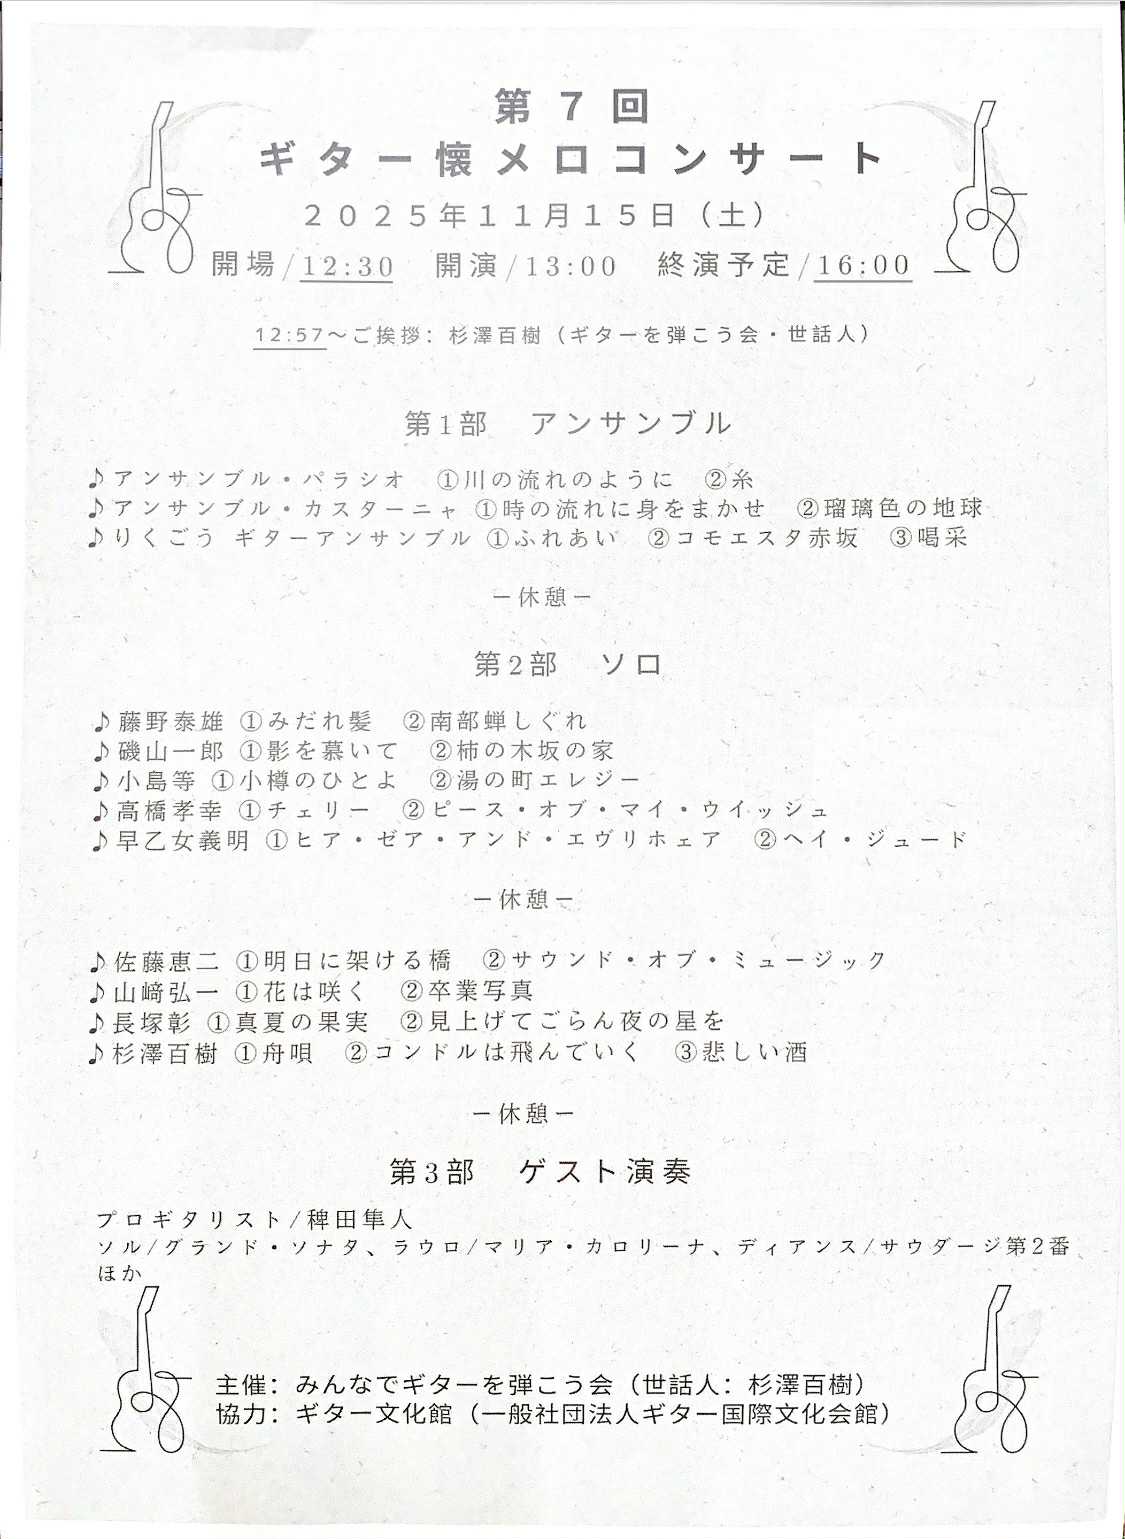 第７回
ギター懐メロコンサート
２０２５年１１月１５日（土）
開場/12:30　開演/13:00　終演予定/16:00
12:57～ご挨拶：杉澤百樹（ギターを弾こう会・世話人）
第1部　アンサンブル
♪アンサンブル・パラシオ　①川の流れのように　②糸
♪アンサンブル・カスターニャ ①時の流れに身をまかせ　②瑠璃色の地球
♪りくごう ギターアンサンブル ①ふれあい　②コモエスタ赤坂　③喝采
－休憩－
第2部　ソロ
♪藤野泰雄 ①みだれ髪　②南部蝉しぐれ
♪磯山一郎 ①影を慕いて　②柿の木坂の家
♪小島等 ①小樽のひとよ　②湯の町エレジー
♪高橋孝幸 ①チェリー　②ピース・オブ・マイ・ウイッシュ
♪早乙女義明 ①ヒア・ゼア・アンド・エヴリホェア　②ヘイ・ジュード
－休憩－
♪佐藤恵二 ①明日に架ける橋　②サウンド・オブ・ミュージック
♪山﨑弘一 ①花は咲く　②卒業写真
♪長塚彰 ①真夏の果実　②見上げてごらん夜の星を
♪杉澤百樹 ①舟唄　②コンドルは飛んでいく　③悲しい酒
－休憩－
第3部　ゲスト演奏
プロギタリスト/稗田隼人
ソル/グランド・ソナタ、ラウロ/マリア・カロリーナ、ディアンス/サウダージ第2番
ほか
主催：みんなでギターを弾こう会（世話人：杉澤百樹）
協力：ギター文化館（一般社団法人ギター国際文化会館）